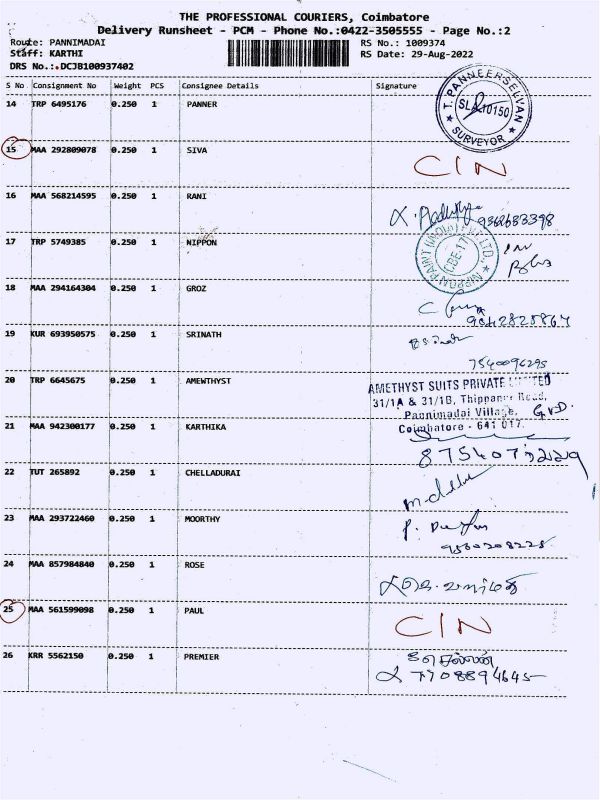 THE PROFESSIONAL COURIERS, Coimbatore
Delivery Runsheet - PCM - Phone No.:0422-3505555 - Page No.:2
Route: PANNIMADAI
Staff: KARTHI
DRS No.:.DCJB100937402
RS No.: 1009374
RS Date: 29-Aug-2022
S No. Consignment No Weight PCS Consignee Details Signature
14 TRP 6495176 0.250 1 PANNER
T. PANNEERSELVAN
SLA 10150
SURVEYOR
15 MAA 292809078 0.250 1 SIVA CIN
16 MAA 568214595 0.250 1 RANI 9362683398
17 TRP 5749385 0.250 1 NIPPON
NIPPON PAINT (INDIA) PVT LTD.
CBE-17
18 MAA 294164304 0.250 1 GROZ
9042828867
19 KUR 693950575 0.250 1 SRINATH
7540096295
20 TRP 6645675 0.250 1 AMEWTHYST
AMETHYST SUITS PRIVATE LIMITED
31/1A & 31/1B, Thippanur Road,
Pannimadai Village,
Coimbatore - 641 017.
21 MAA 942300177 0.250 1 KARTHIKA
22 TUT 265892 0.250 1 CHELLADURAI
23 MAA 293722460 0.250 1 MOORTHY
24 MAA 857984840 0.250 1 ROSE
25 MAA 561599098 0.250 1 PAUL CIN
26 KRR 5562150 0.250 1 PREMIER
7708894645